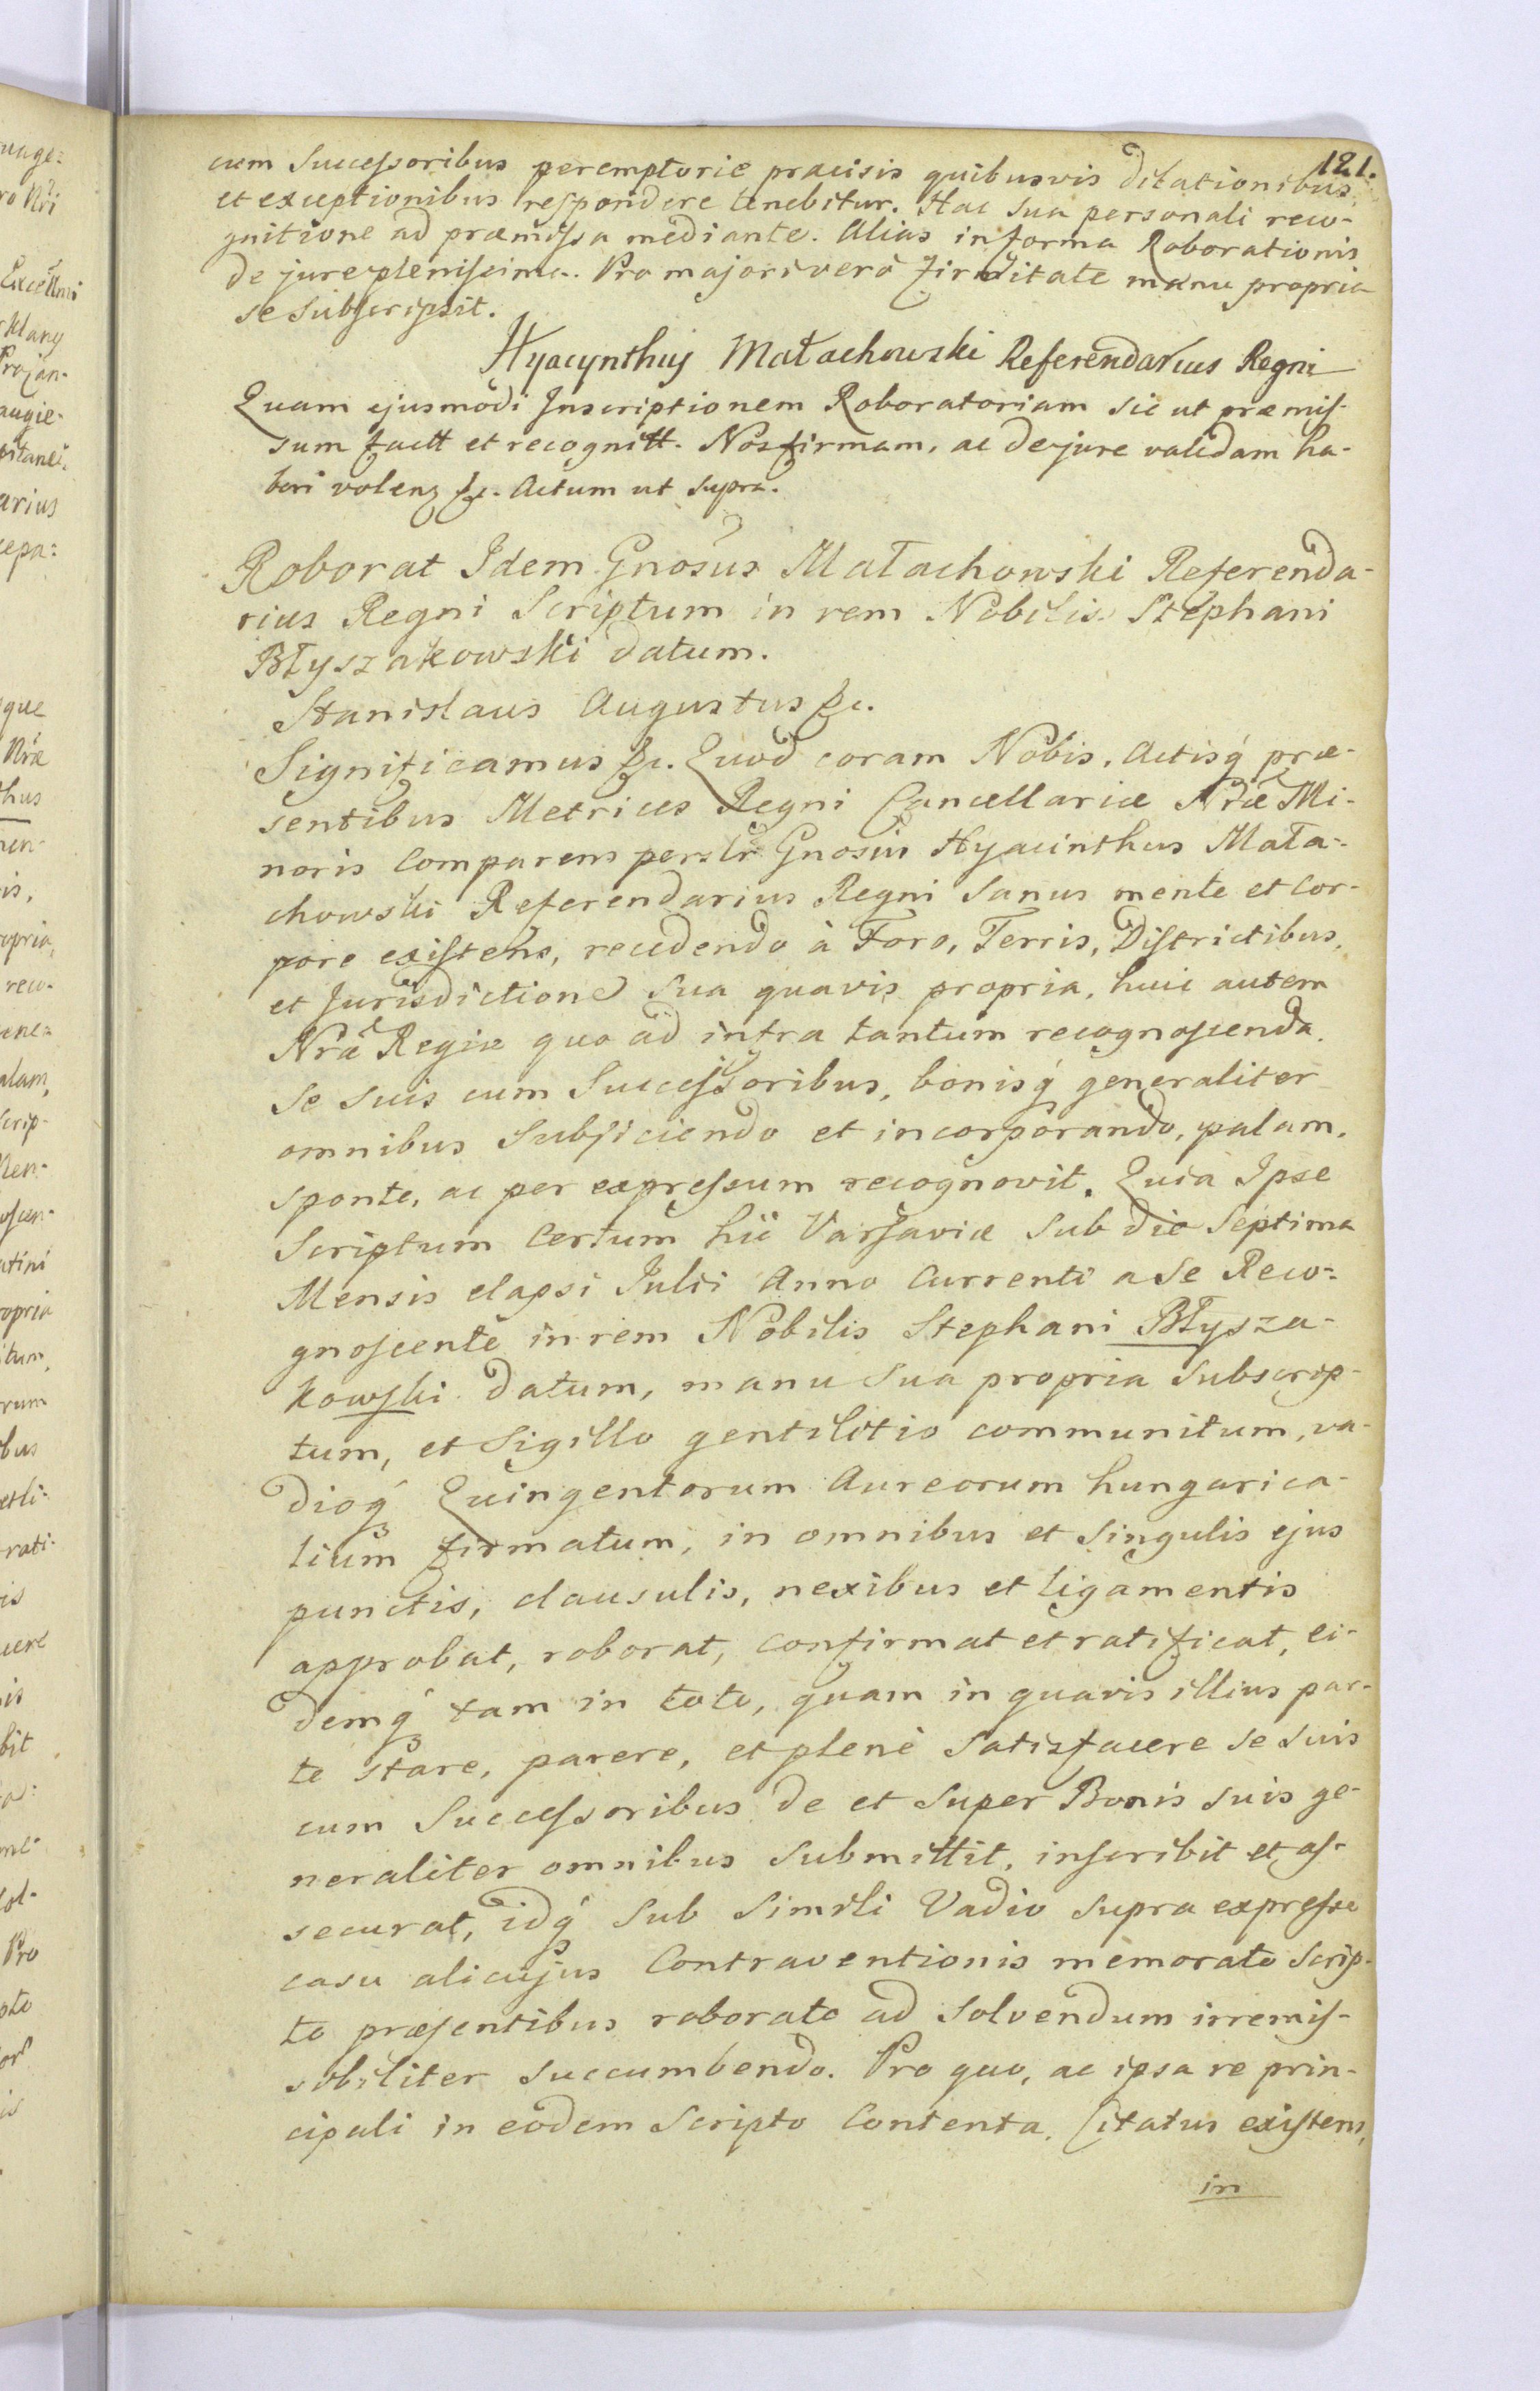 121.
cum Successoribus peremptorie praecisis quibusvis dilationibus
et exceptionibus respondere tenebitur. Hac sua personali reco-
gnitione ad praemissa mediante. Alias in forma Roborationis
de jure plenissima. Pro majori verò firmitate manu propria
se subscripsit.
Hyacynthus Małachowski Referendarius Regni
Quam ejusmodi Inscriptionem Roboratoriam sic ut praemis-
sum factt et recognitt. Nos firmam, ac de jure validam ha-
beri volenz &c. Actum ut supra.
Roborat Idem Gnosus Małachowski Referenda-
rius Regni Scriptum in rem Nobilis Stephani
Błyszakowski datum.
Stanislaus Augustus &c.
Significamus &c. Quod coram Nobis, Actisq́ prae-
sentibus Metrices Regni Cancellariae Nrae Mi-
noris comparens persltr Gnosus Hyacinthus Mała-
chowski Referendarius Regni Sanus mente et Cor-
pore existens, recedendo à Foro, Terris, Districtibus,
et Jurisdictione Sua quavis propria, huic autem
Nrae Regiae quo ad infra tantum recognoscenda.
Se suis cum Successoribus, bonisq́ generaliter
omnibus Subjiciendo et incorporando, palam,
sponte, ac per expressum recognovit. Quia Ipse
Scriptum Certum hic Varsaviae Sub die Septima
Mensis elapsi Julii Anno Currenti a Se Reco-
gnoscente in rem Nobilis Stephani Błysza-
kowski datum, manu Sua propria Subscrip-
tum, et Sigillo gentilitio communitum, va-
dioq́ Quingentorum Aureorum hungarica-
lium firmatum, in omnibus et Singulis ejus
punctis, clausulis, nexibus et ligamentis
approbat, roborat, confirmat et ratificat, ei-
demq́ tam in toto, quam in quavis illius par-
te stare, parere, et plenè Satisfacere Se Suis
cum Successoribus de et Super Bonis suis ge-
neraliter omnibus Submittit, inscribit et as-
securat, idq́ Sub Simili Vadio Supra expresso
casu alicujus Contraventionis memorato Scrip-
to praesentibus roborato ad Solvendum irremis-
sibiliter Succumbendo. Pro quo, ac ipsa re prin-
cipali in eodem Scripto Contenta, Citatus existens,
in